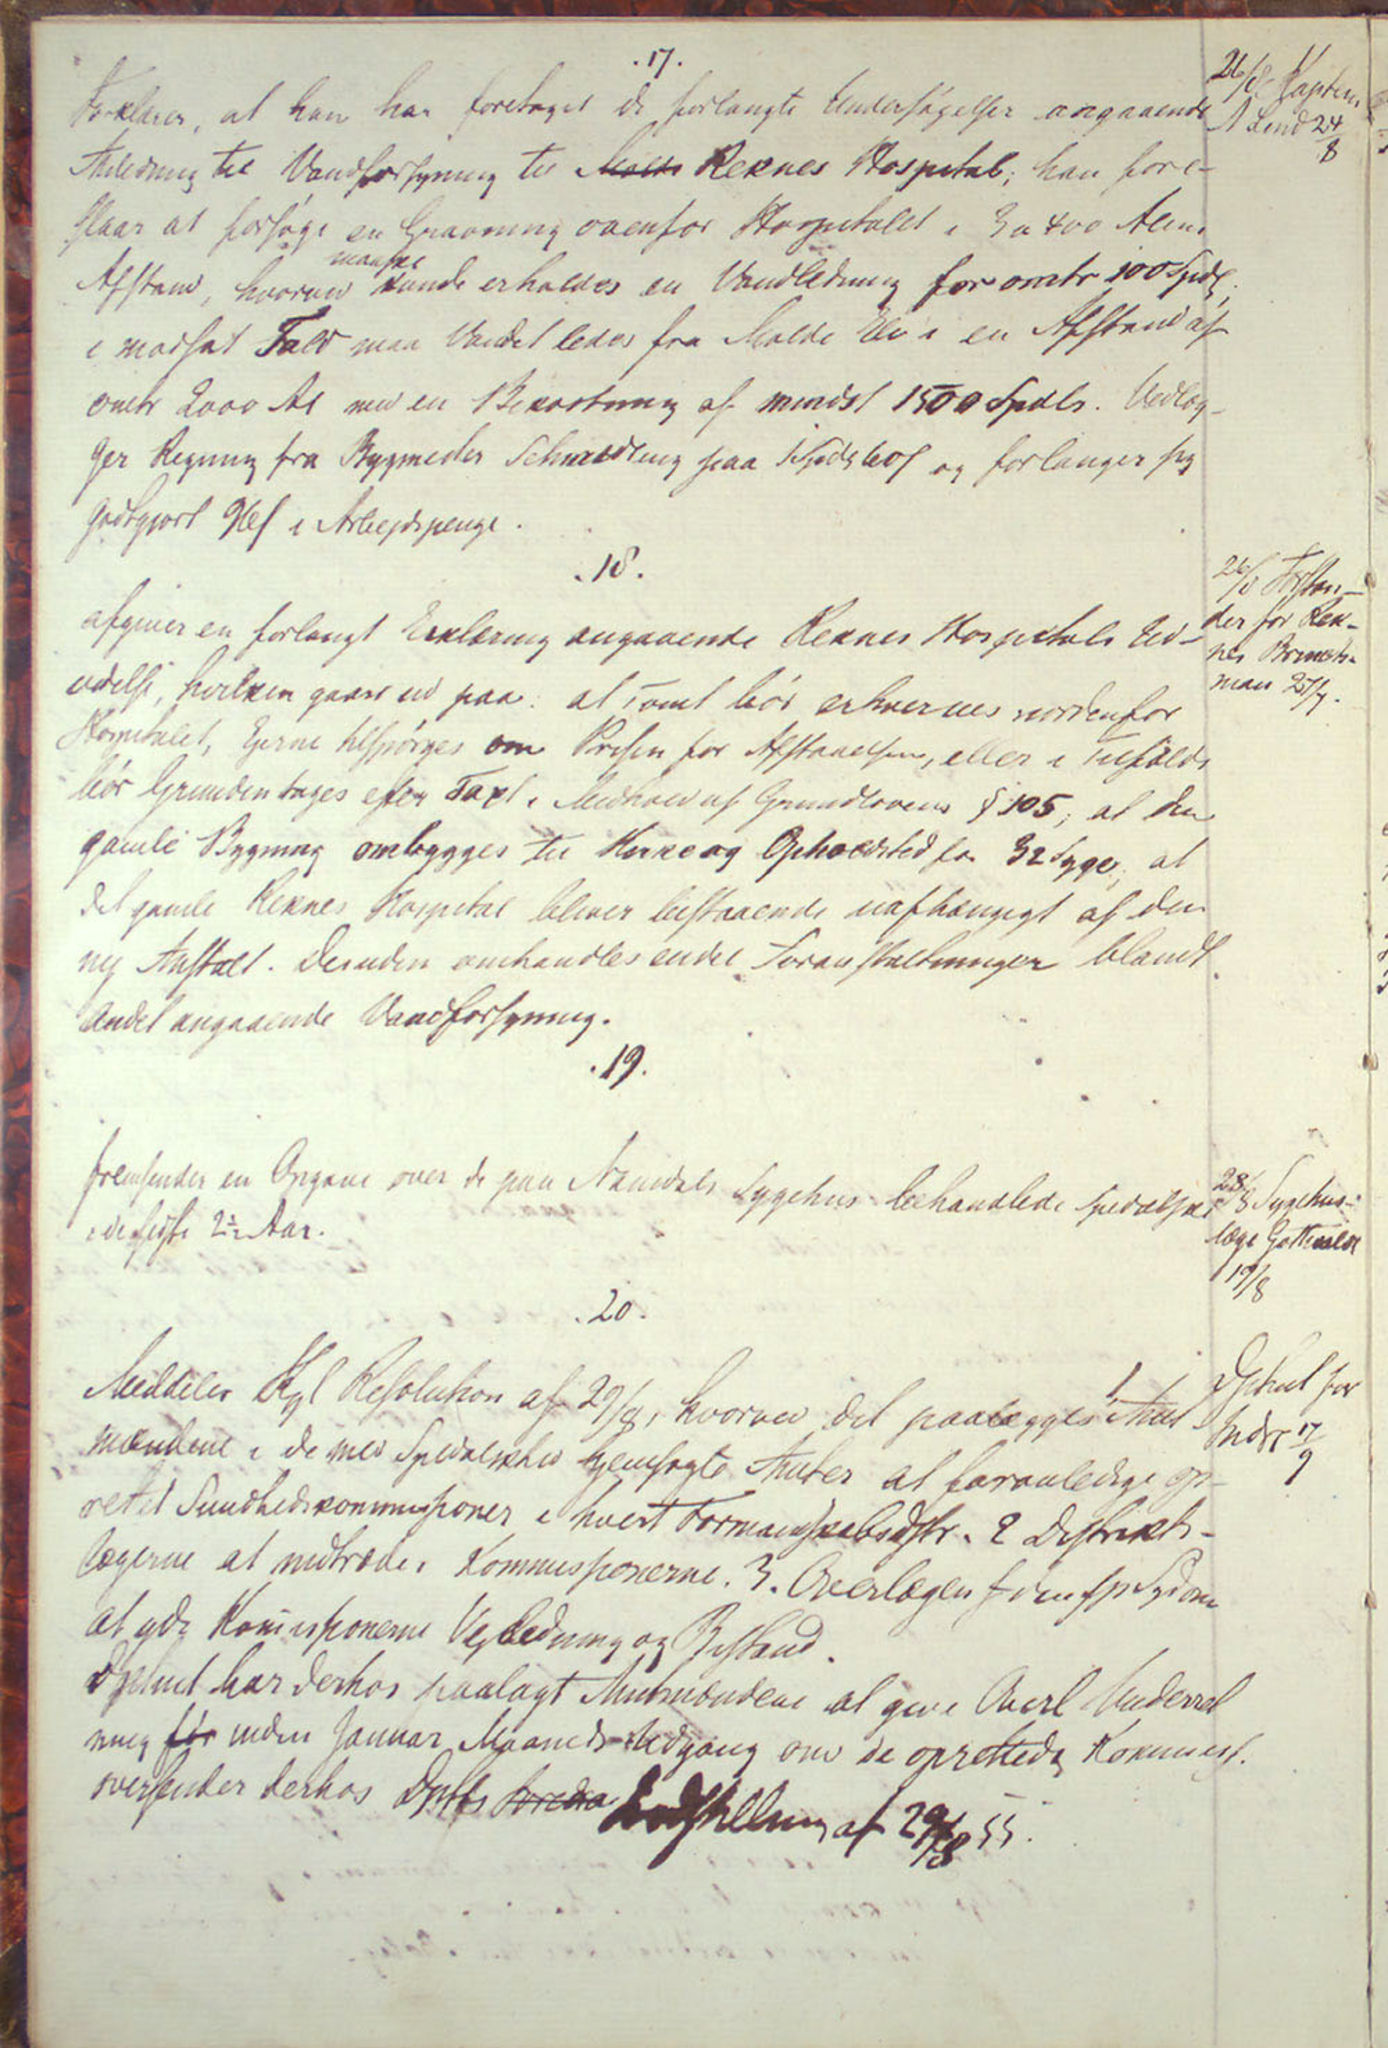 .17.
Forklarer, at han har foretaget de forlangte Undersøgelser angaaende
Anledning til Vandforsyning til Molde Reknes Hospital; han fore-
slaar at forsøge en Gravning ovenfor Hospitalet i 3 a 400 Alens
maaske
Afstand, hvorved kunde erholdes en Vandledning for omtr 100 Spdl,
i modsat Fald maa Vandet ledes fra Molde Elv i en Afstand af
omtr 2000 Al med en Bekostning af mindst 1500 Spdlr. Vedlæg-
ger Regning fra Bygmester paa og forlanger sig
godtgjort i Arbejdspenge.
26/8 Kaptein
Lund 24/8
.18.
afgiver en forlangt Erklæring angaaende Reknes Hospitals Ud-
videlse, hvilken gaar ud paa: at Tomt bør erhverves nordenfor
Hospitalet, Ejerne tilspørges om Prisen for Afstaaelsen, eller i Tilfælde
bør Grunden tages efter Taxt i Medhold af Grundlovens § 105; at den
gamle Bygning ombygges til Kirke og Opholdsted for 32 Syge; at
det gamle Reknes Hospital bliver bestaaende uafhængigt af den
ny Anstalt. Desuden omhandles endel Foranstaltninger blandt
Andet angaaende Vandforsyning.
26/8 Forstan-
der for Rek-
nes
man 27/7.
.19.
fremsender en Opgave over de paa Namdals Sygehus behandlede Spedalske
i de sidste 2½ Aar.
28/8 Sygehus-
læge Gottwaldt
19/8
.20.
Meddeler Kgl Resolution af 29/8, hvorved det paalægges 1 Amt
mændene i de med Spedalskhed hjemsøgte Amter at foranledige op-
rettet Sundhedskommissioner i hvert Formandskabsdistr. 2 Distrikts-
lægerne at indtræde i Kommissionerne. 3. Overlægen f den sp Sygdom
at yde Komissionerne Vejledning og Bistand.
Dptmt har derhos paalagt Amtmændene at give Overl Underret
ning før inden Januar Maaneds Udgang om de oprettede Kommiss.
oversender derhos Dptts Foredra Indstilling af 29/8 55.
Dptmt for
Indre 17/9